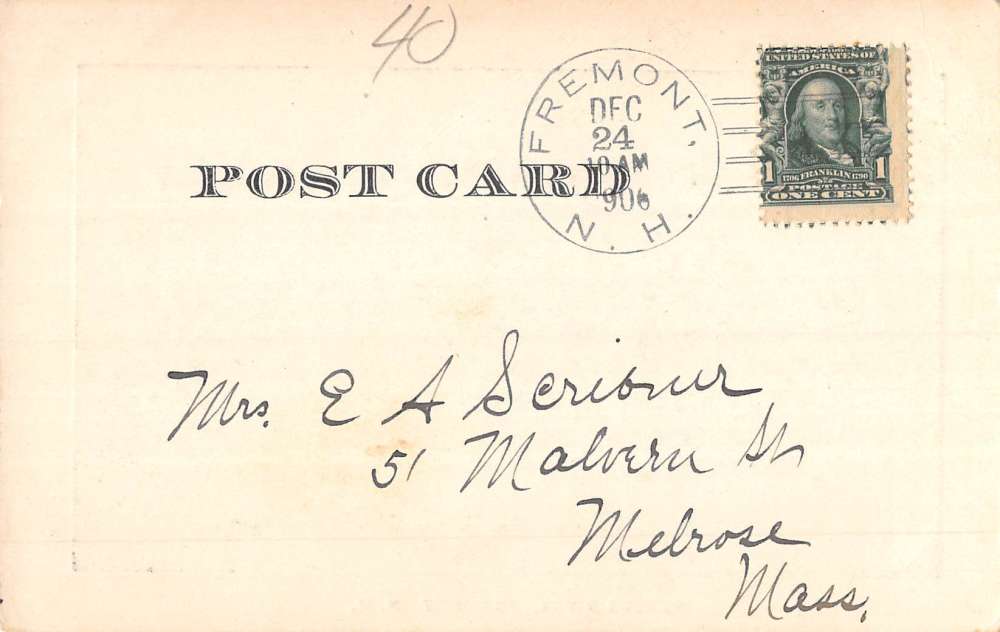 40
FREMONT,
DEC
24
10 AM
1906
N. H.
UNITED STATES OF
AMERICA
1 1
1706 FRANKLIN 1790
POSTAGE
ONE CENT
POST CARD
Mrs. E A Scribner
51 Malvern St
Melrose
Mass.